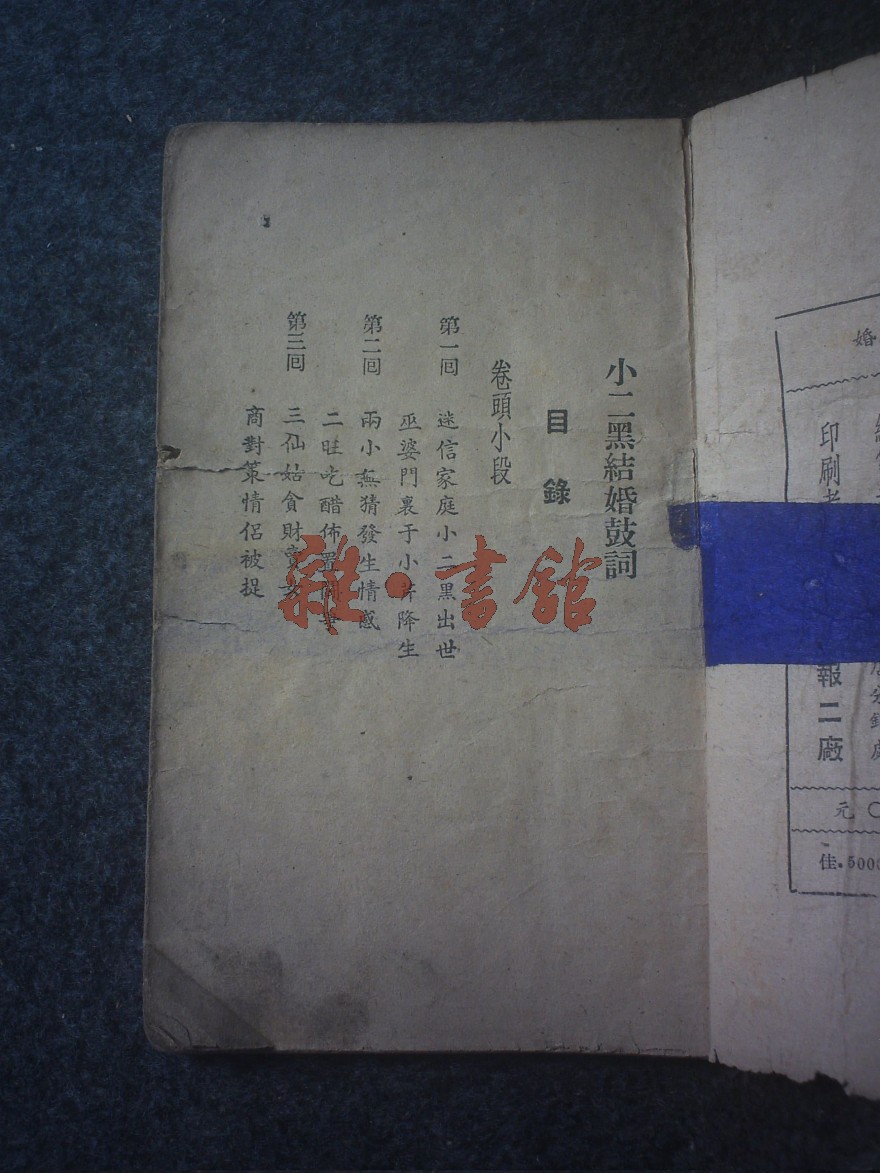 小二黑結婚鼓詞
目錄
卷頭小段
第一回 迷信家庭小二黑出世
巫婆門裏于小芹降生
第二回 兩小無猜發生情感
二旺吃醋佈置鬧事
第三回 三仙姑貪財賣女
商對策情侶被捉
雜·書館
婚
印刷者
報二廠
元〇
佳.5000